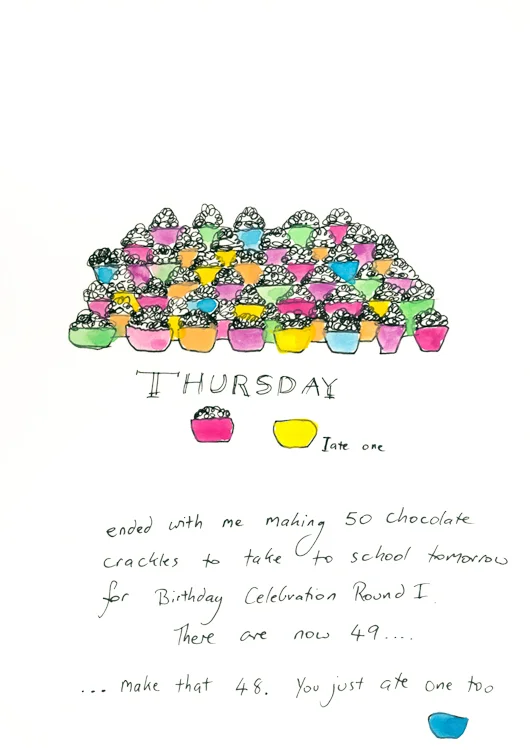 THURSDAY
I ate one
ended with me making 50 chocolate
crackles to take to school tomorrow
for Birthday Celebration Round I.
There are now 49....
... make that 48. You just ate one too